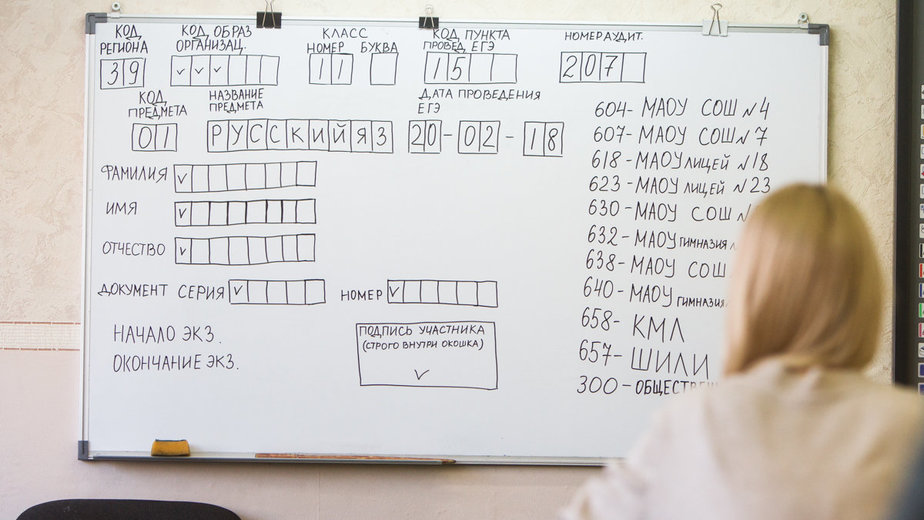 КОД РЕГИОНА
39
КОД ОБРАЗ ОРГАНИЗАЦ.
КЛАСС
НОМЕР БУКВА
11
КОД ПУНКТА ПРОВЕД. ЕГЭ
15
НОМЕР АУДИТ.
207
КОД ПРЕДМЕТА
01
НАЗВАНИЕ ПРЕДМЕТА
РУССКИЙ ЯЗ
ДАТА ПРОВЕДЕНИЯ ЕГЭ
20-02-18
ФАМИЛИЯ
ИМЯ
ОТЧЕСТВО
ДОКУМЕНТ СЕРИЯ НОМЕР
НАЧАЛО ЭКЗ.
ОКОНЧАНИЕ ЭКЗ.
ПОДПИСЬ УЧАСТНИКА
(СТРОГО ВНУТРИ ОКОШКА)
604- МАОУ СОШ №4
607- МАОУ СОШ №7
618- МАОУ ЛИЦЕЙ №18
623- МАОУ ЛИЦЕЙ №23
630- МАОУ СОШ
632- МАОУ ГИМНАЗИЯ
638- МАОУ СОШ
640- МАОУ ГИМНАЗИЯ
658- КМЛ
657- ШИЛИ
300-